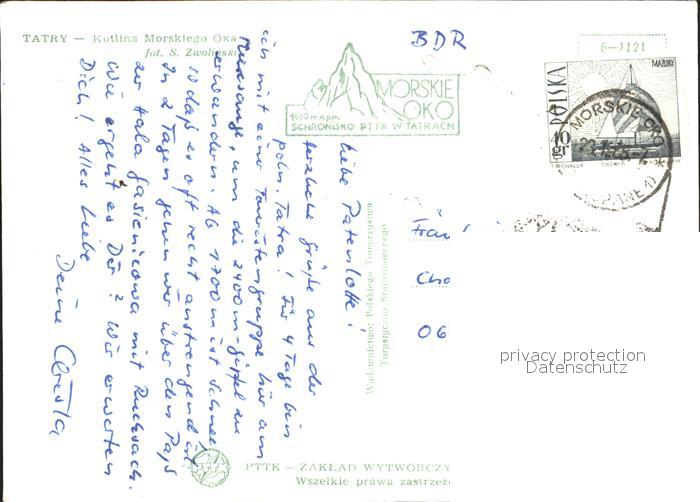 TATRY — Kotlina Morskiego Oka
fot. S. Zwoliński
BDR
6-1121
MORSKIE
OKO
1410 m n.p.m.
SCHRONISKO PTTK W TATRACH
POLSKA
MAZURY
40 gr
MORSKIE OKO
Liebe Patenlotte!
Herzliche Grüße aus der
poln. Tatra! Für 4 Tage bin
ich mit einer Touristengruppe hier am
um die 2400 m-Gipfel zu
erwandern. Ab 1700 m ist Schnee
so daß es oft recht anstrengend ist
In 2 Tagen gehen wir über den Paß
zur Hala Gąsienicowa mit Rucksack.
Wie ergeht es Dir? Wir erwarten
Dich! Alles Liebe
Deine Christa
Wydawnictwo: Polskiego Towarzystwa
Turystyczno Krajoznawczego
Frau
06
privacy protection
Datenschutz
PTTK — ZAKŁAD WYTWÓRCZY
Wszelkie prawa zastrzeż